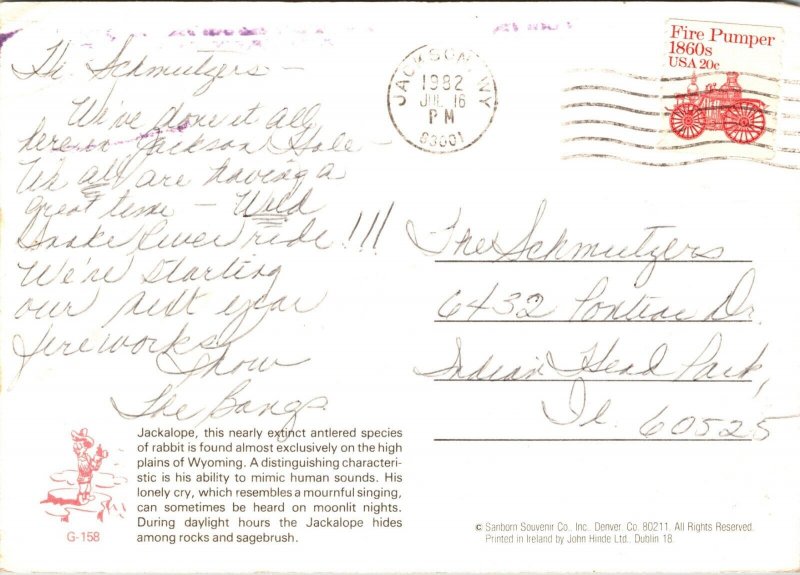 Hi Schmutzers —
We've done it all
here in Jackson Hole —
We all are having a
great time — Wild
Snake River ride!!!
We're starting
our next year
fireworks
show
The Bangs
JACKSON, WY
1982
JUL 16
PM
83001
Fire Pumper
1860s
USA 20c
The Schmutzers
6432 Pontiac Dr.
Indian Head Park,
Il. 60525
Jackalope, this nearly extinct antlered species
of rabbit is found almost exclusively on the high
plains of Wyoming. A distinguishing characteri-
stic is his ability to mimic human sounds. His
lonely cry, which resembles a mournful singing,
can sometimes be heard on moonlit nights.
During daylight hours the Jackalope hides
among rocks and sagebrush.
G-158
© Sanborn Souvenir Co., Inc. Denver, Co. 80211. All Rights Reserved.
Printed in Ireland by John Hinde Ltd., Dublin 18.